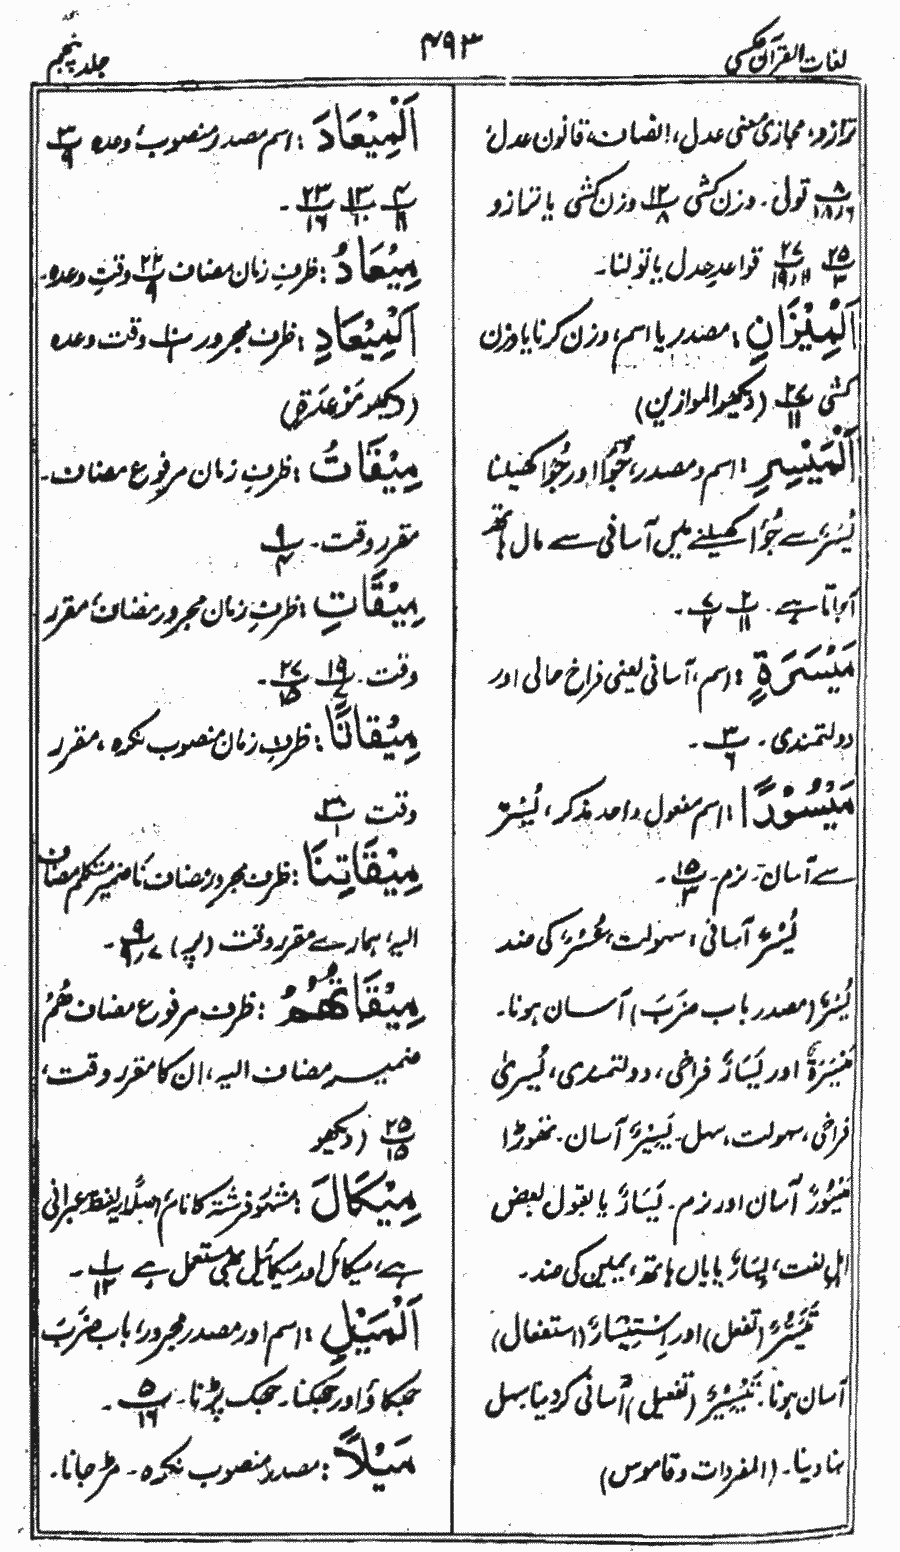 لغات القرآن عکسی
۴۹۳
جلد پنجم
ترازو، مجازی معنی عدل، انصاف، قانون عدل
۸ / ۱۸،۶ تول۔ وزن کشی ۱۲ / ۸ وزن کشی یا ترازو
۲۵ / ۳ ۲۷ / ۱۹،۱۱ قواعدِ عدل یا تولنا۔
اَلْمِيْزَانِ : مصدر یا اسم، وزن کرنا یا وزن
کشی ۲۷ / ۱۱ (دیکھو الموازین)
اَلْمَيْسِرِ : اسم و مصدر، جُؤا اور جُؤا کھیلنا
یُسْرٌ سے جُؤا کھیلنے میں آسانی سے مال ہاتھ
آجاتا ہے۔ ۲ / ۱۱ ۷ / ۲۔
مَيْسَرَةٍ : اسم، آسانی یعنی فراخ حالی اور
دولتمندی۔ ۳ / ۶۔
مَيْسُوْرًا : اسم مفعول واحد مذکر، یُسْرٌ
سے آسان۔ نرم۔ ۱۵ / ۳۔
یُسْرٌ آسانی، سہولت، عُسْرٌ کی ضد
یُسْرٌ (مصدر باب ضَرَبَ) آسان ہونا۔
مَیْسَرَۃٌ اور یَسَارٌ فراخی، دولتمندی، یُسریٰ
فراخی، سہولت، سہل۔ یَسِیْرٌ آسان۔ تھوڑا
مَیْسُوْرٌ آسان اور نرم۔ یَسَارٌ یا بقول بعض
اہلِ لغت، یِسَارٌ بایاں ہاتھ، یمین کی ضد۔
تَیَسُّرٌ (تفعل) اور اِسْتِیْسَارٌ (استفعال)
آسان ہونا۔ تَیْسِیْرٌ (تفعیل) آسانی کردینا سہل
بنا دینا۔ (المفردات و قاموس)
اَلْمِيْعَادَ : اسم مصدر منصوب، وعدہ ۳ / ۹
۴ / ۱۱ ۱۳ / ۱۰ ۲۳ / ۱۶۔
مِيْعَادُ : ظرفِ زمان مضاف ۲۲ / ۹ وقتِ وعدہ۔
اَلْمِيْعَادِ : ظرف مجرور ۱۰ / ۱ وقت وعدہ
(دیکھو مَوْعِدَۃٍ)
مِيْقَاتُ : ظرفِ زمان مرفوع مضاف۔
مقرر وقت۔ ۹ / ۴
مِيْقَاتِ : ظرفِ زمان مجرور مضاف، مقرر
وقت۔ ۱۹ / ۷ ۲۷ / ۱۵۔
مِيْقَاتًا : ظرفِ زمان منصوب نکرہ، مقرر
وقت ۳۰ / ۱
مِيْقَاتِنَا : ظرف مجرور مضاف نَا ضمیر متکلم مضاف
الیہ، ہمارے مقرر وقت (پر) ۹ / ۹،۷۔
مِيْقَاتُهُمْ : ظرف مرفوع مضاف ھُمْ
ضمیر مضاف الیہ، ان کا مقرر وقت،
۲۵ / ۱۵ (دیکھو
مِيْكَالَ : مشہور فرشتہ کا نام، اصلاً یہ لفظ عبرانی
ہے، میکائل اور میکائیل بھی مستعمل ہے ۱ / ۱۲۔
اَلْمَيْلِ : اسم اور مصدر مجرور، باب ضَرَبَ
جھکاؤ اور جھکنا۔ جھک پڑنا۔ ۵ / ۱۶۔
مَيْلًا : مصدر منصوب نکرہ۔ مڑ جانا۔